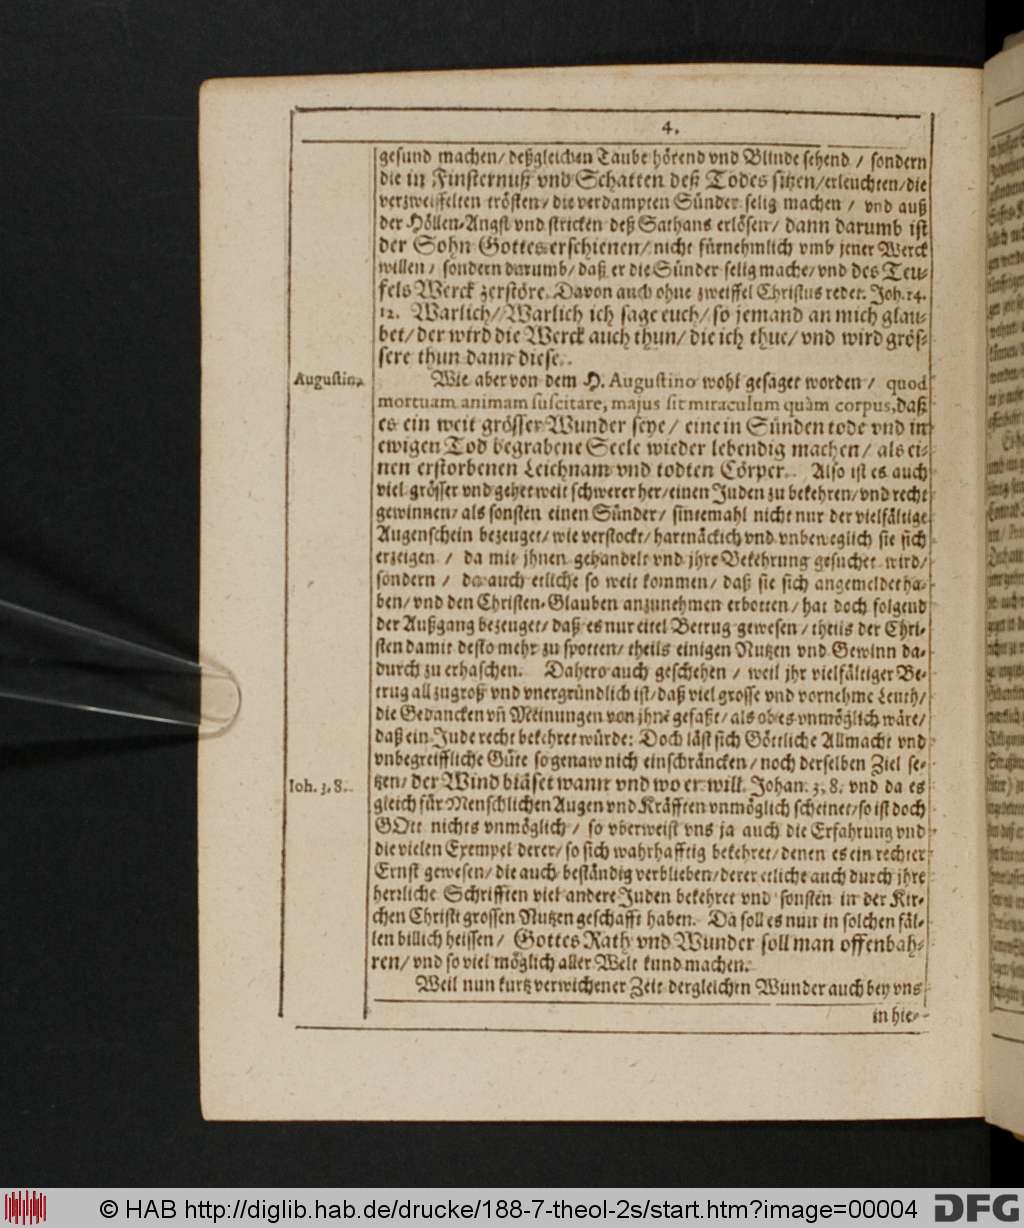 4.
gesund machen/ deßgleichen Taube hörend vnd Blinde sehend / sondern
die in Finsternuß vnd Schatten deß Todes sitzen/erleuchten/die
verzweiffelten trösten/ die verdampten Sünder selig machen / vnd auß
der Höllen-Angst vnd stricken deß Sathans erlösen/ dann darumb ist
der Sohn Gottes erschienen/ nicht fürnehmlich vmb jener Werck
willen / sondern darumb/ daß er die Sünder selig mache/ vnd des Teu-
fels Werck zerstöre. Davon auch ohne zweiffel Christus redet. Joh. 14.
12. Warlich/ Warlich ich sage euch/ so jemand an mich glau-
bet/ der wird die Werck auch thun/ die ich thue/ vnd wird grös-
sere thun dann diese.
Augustin.
Wie aber von dem H. Augustino wohl gesaget worden / quod
mortuam animam suscitare, majus sit miraculum quàm corpus, daß
es ein weit grösser Wunder seye / eine in Sünden tode vnd im
ewigen Tod begrabene Seele wieder lebendig machen/ als ei-
nen erstorbenen Leichnam vnd todten Cörper. Also ist es auch
viel grösser vnd gehet weit schwerer her/ einen Juden zu bekehren/ vnd recht
gewinnen/ als sonsten einen Sünder/ sintemahl nicht nur der vielfältige
Augenschein bezeuget/ wie verstockt/ hartnäckich vnd vnbeweglich sie sich
erzeigen / da mit jhnen gehandelt vnd jhre Bekehrung gesuchet wird/
sondern / da auch etliche so weit kommen/ daß sie sich angemeldet ha-
ben/ vnd den Christen-Glauben anzunehmen erbotten/ hat doch folgend
der Außgang bezeuget/ daß es nur eitel Betrug gewesen/ theils der Chri-
sten damit desto mehr zu spotten/ theils einigen Nutzen vnd Gewinn da-
durch zu erhaschen. Dahero auch geschehen / weil jhr vielfältiger Be-
trug all zugroß vnd vnergründlich ist/ daß viel grosse vnd vornehme Leuth/
die Gedancken vñ Meinungen von jhnē gefaßt/ als ob es vnmöglich wäre/
daß ein Jude recht bekehret würde: Doch läst sich Göttliche Allmacht vnd
vnbegreiffliche Güte so genaw nich einschräncken/ noch derselben Ziel se-
Ioh. 3, 8.
tzen/ der Wind bläset wann vnd wo er will. Johan. 3, 8. vnd da es
gleich für Menschlichen Augen vnd Kräfften vnmöglich scheinet/ so ist doch
GOtt nichts vnmöglich / so vberweist vns ja auch die Erfahrung vnd
die vielen Exempel derer/ so sich wahrhafftig bekehret/ denen es ein rechter
Ernst gewesen/ die auch beständig verblieben/ derer etliche auch durch jhre
herrliche Schrifften viel andere Juden bekehret vnd sonsten in der Kir-
chen Christi grossen Nutzen geschafft haben. Da soll es nun in solchen fäl-
len billich heissen/ Gottes Rath vnd Wunder soll man offenbah-
ren/ vnd so viel möglich aller Welt kund machen.
Weil nun kurtz verwichener Zeit dergleichen Wunder auch bey vns
in hie-
© HAB http://diglib.hab.de/drucke/188-7-theol-2s/start.htm?image=00004
DFG